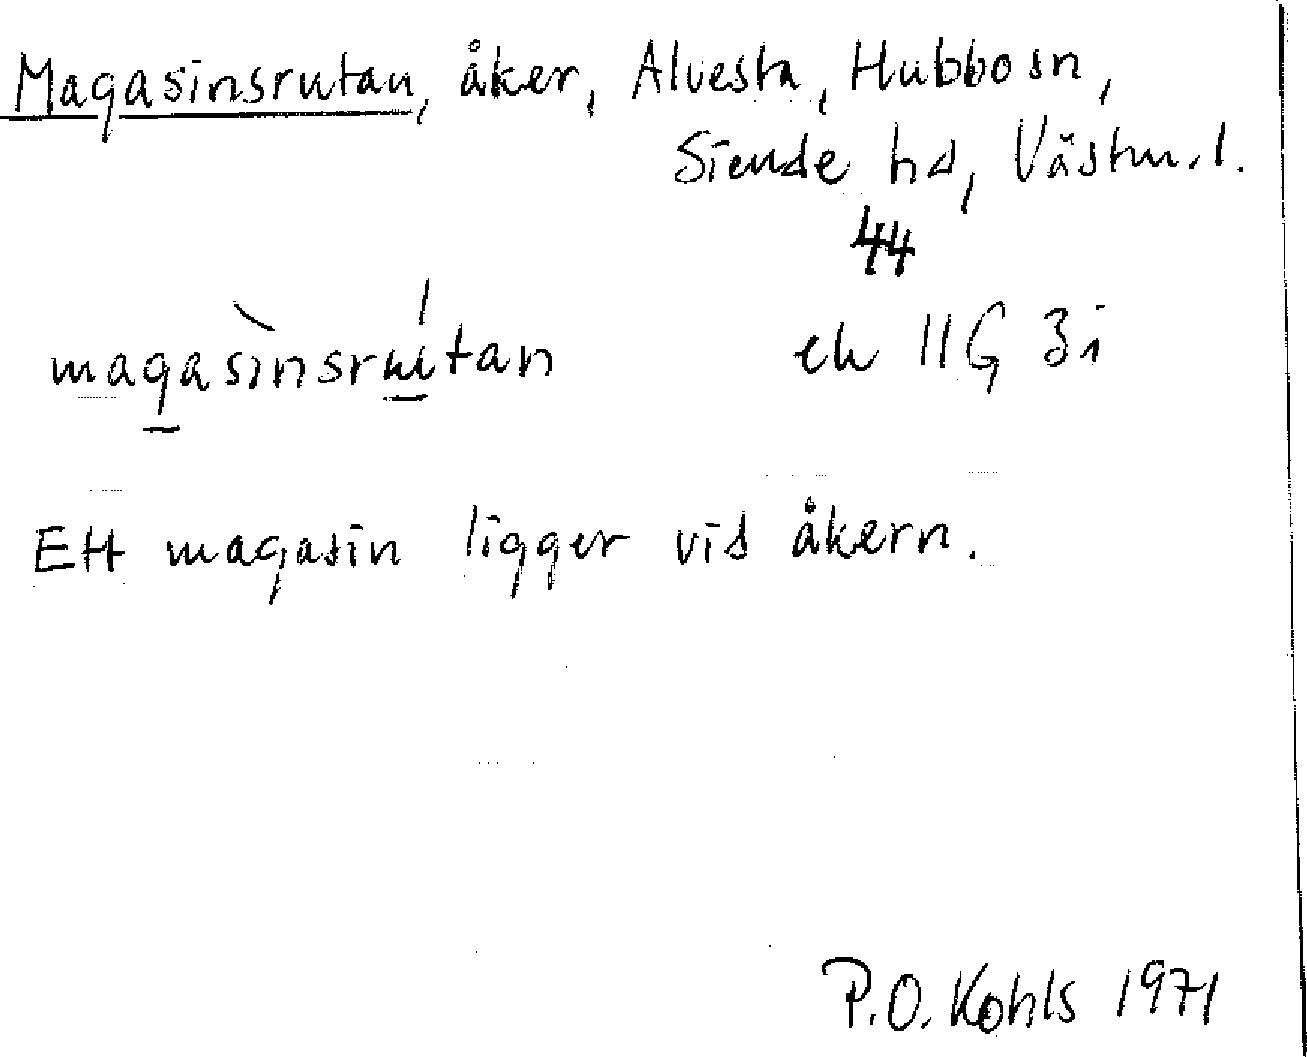 Magasinsrutan, åker, Alvesta, Hubbo sn,
Siende hd, Västm. l.
44
magasìnsrútan ek 11G 3i
Ett magasin ligger vid åkern.
P.O. Kohls 1971